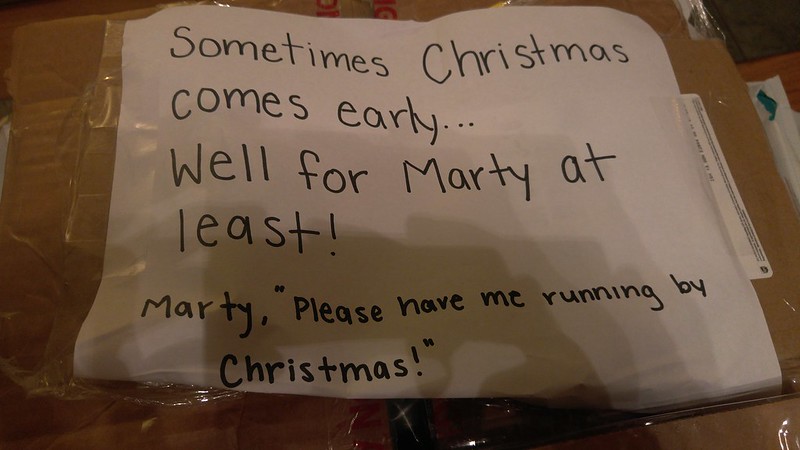 Sometimes Christmas
comes early...
Well for Marty at
least!
Marty, "Please have me running by
Christmas!"